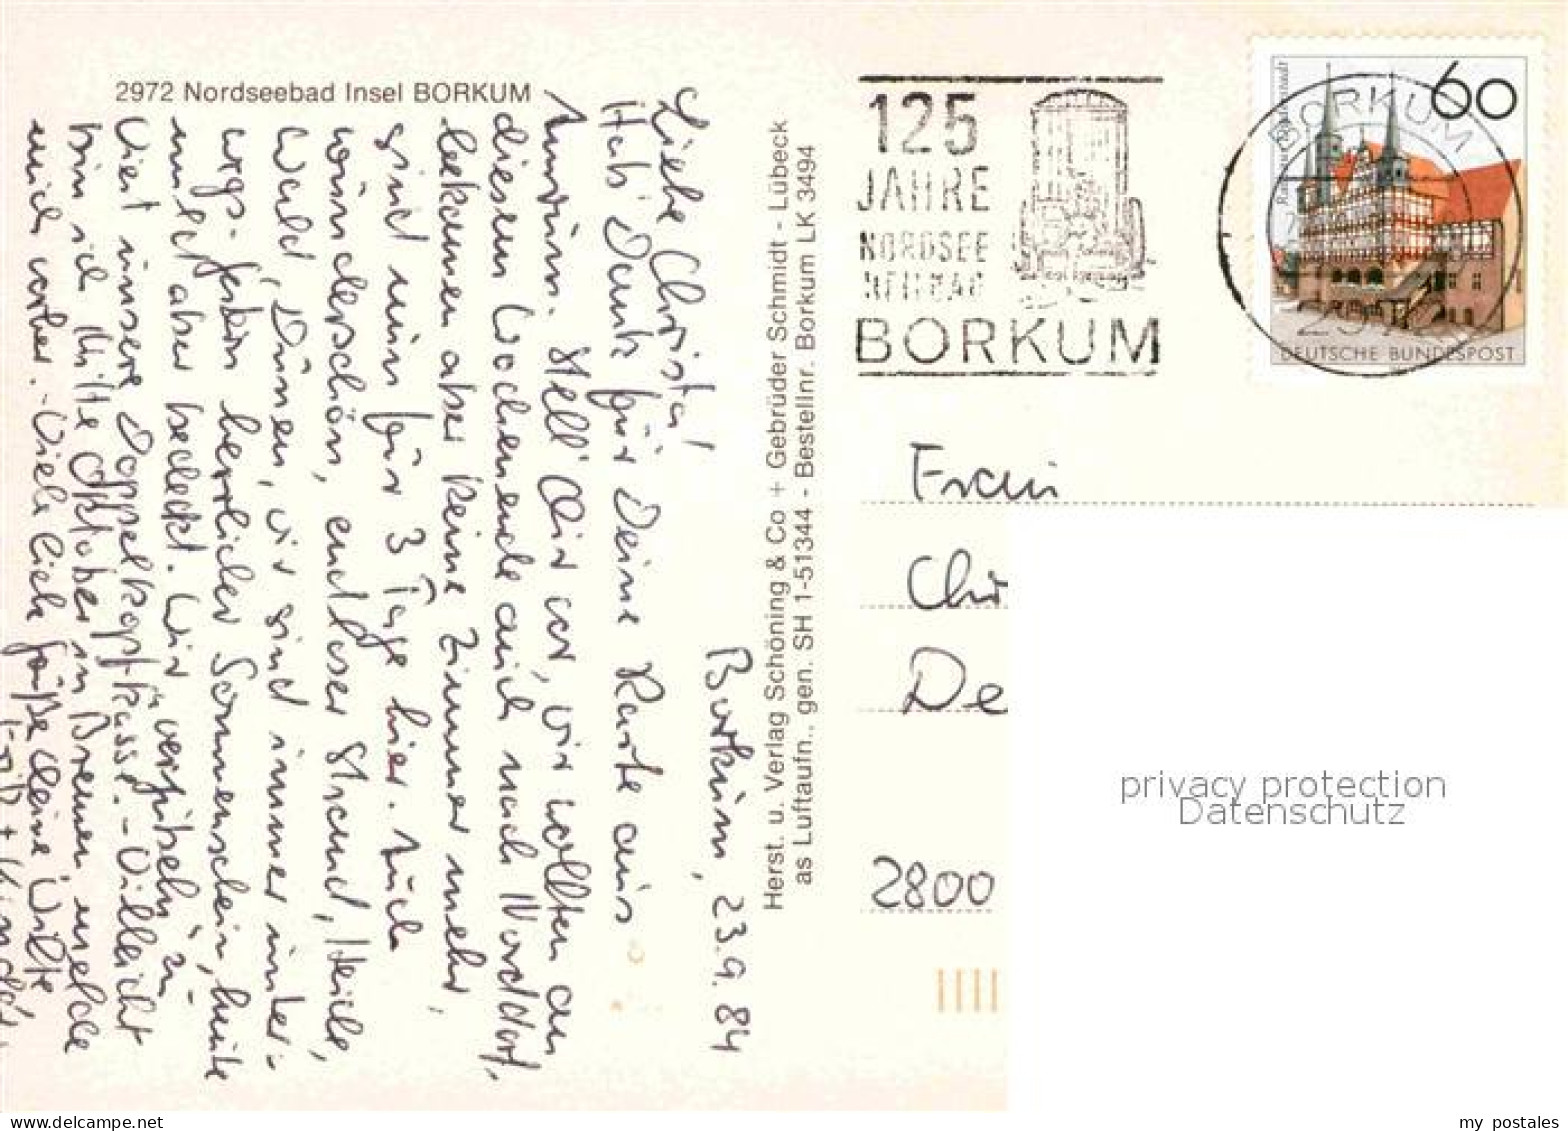 2972 Nordseebad Insel BORKUM
Borkum, 23.9.84
Liebe Christa!
Hab' Dank für Deine Karte aus
Stell' Dir vor, wir wollten an
diesem Wochenende auch nach Norddorf,
bekamen aber keine Zimmer mehr,
sind nun für 3 Tage hier. Auch
wunderschön, endloser Strand, Heide,
Wald, Dünen, wir sind immer unter-
wegs. gestern herrlicher Sonnenschein, heute
aber bedeckt. Wir "verjubeln" z.
Zeit unsere Doppelkopfkasse. - Vielleicht
bin ich Mitte Oktober in Bremen, melde
mich vorher. Viele liebe Grüße Deine Ulte
Herst. u. Verlag Schöning & Co + Gebrüder Schmidt - Lübeck
as Luftaufn., gen. SH 1-51344 - Bestellnr. Borkum LK 3494
125
JAHRE
NORDSEE
HEILBAD
BORKUM
BORKUM
60
DEUTSCHE BUNDESPOST
Frau
Chr
De
2800
privacy protection
Datenschutz
my postales